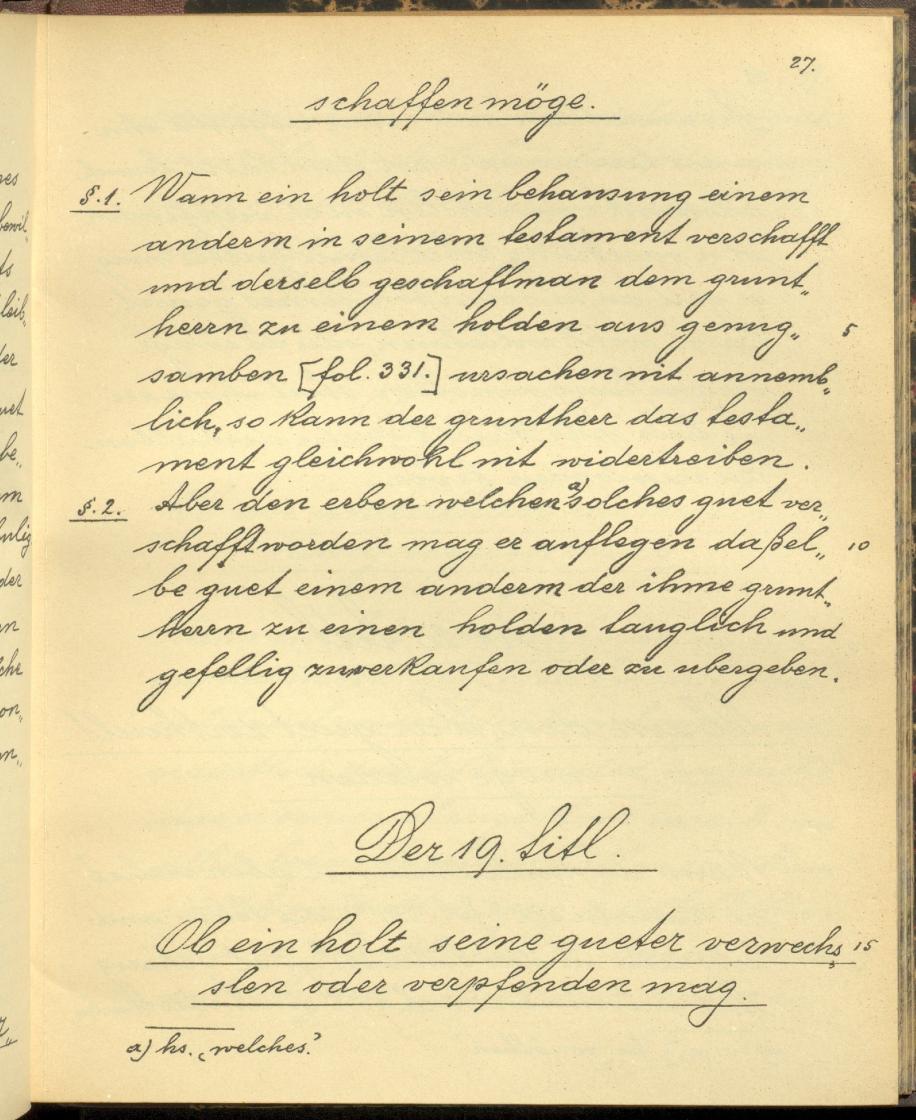 27.
schaffen möge.
§.1. Wann ein holt sein behausung einem
anderm in seinem testament verschafft
und derselb geschaftman dem grunt„
herrn zu einem holden aus genug„ 5
samben [fol. 331.] ursachen nit annemb„
lich, so kann der gruntherr das testa„
ment gleichwohl nit widertreiben.
§.2. Aber den erben welchen a) solches guet ver„
schafft worden mag er auflegen daßel„ 10
be guet einem anderm der ihme grunt„
herrn zu einen holden tauglich und
gefellig zuverkaufen oder zu ubergeben.
Der 19. titl.
Ob ein holt seine gueter verwechs 15
slen oder verpfenden mag.
a) hs. „welches.“